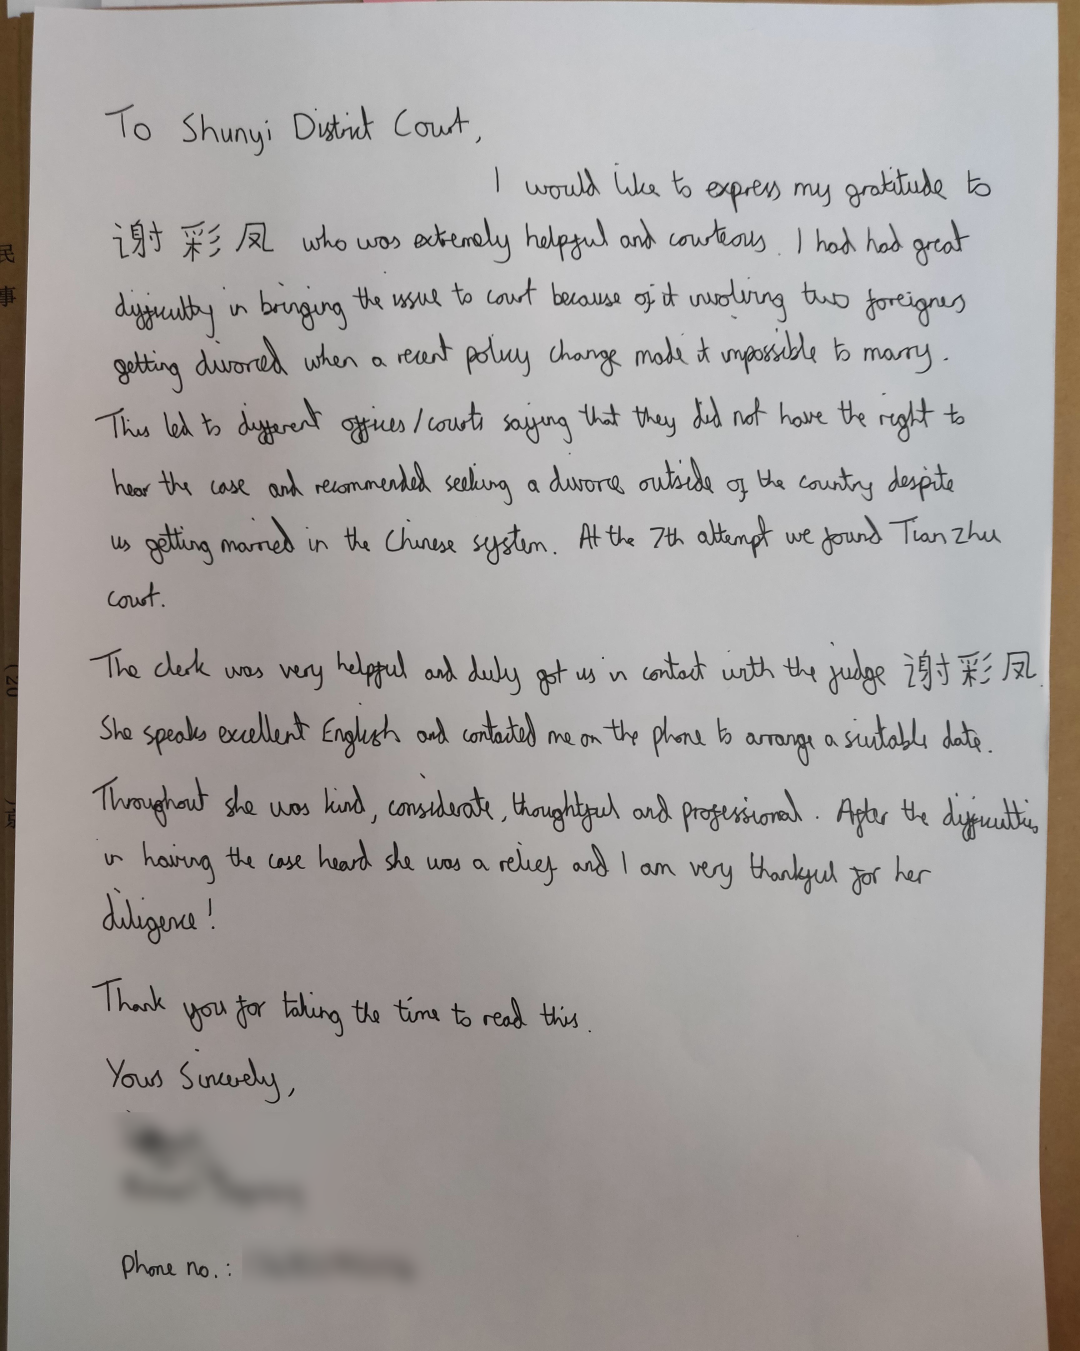 To Shunyi District Court,
I would like to express my gratitude to
谢彩凤 who was extremely helpful and courteous. I had had great
difficulty in bringing the issue to court because of it involving two foreigners
getting divorced when a recent policy change made it impossible to marry.
This led to different offices/courts saying that they did not have the right to
hear the case and recommended seeking a divorce outside of the country despite
us getting married in the Chinese system. At the 7th attempt we found Tian Zhu
court.
The clerk was very helpful and duly got us in contact with the judge 谢彩凤.
She speaks excellent English and contacted me on the phone to arrange a suitable date.
Throughout she was kind, considerate, thoughtful and professional. After the difficulties
in having the case heard she was a relief and I am very thankful for her
diligence!
Thank you for taking the time to read this.
Yours Sincerely,
Phone no.:
民
事
(20
京